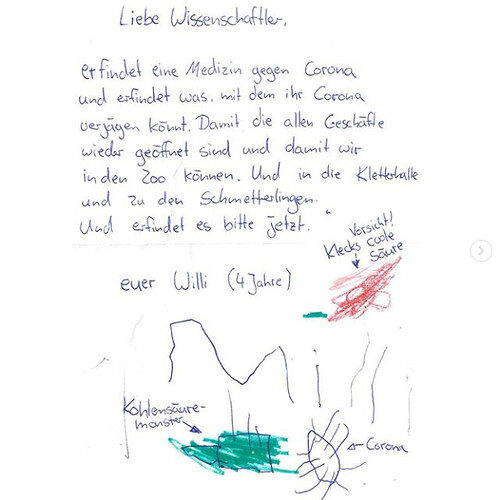 Liebe Wissenschaftler,
erfindet eine Medizin gegen Corona
und erfindet was, mit dem ihr Corona
verjagen könnt. Damit die allen Geschäfte
wieder geöffnet sind und damit wir
in den Zoo können. Und in die Kletterhalle
und zu den Schmetterlingen.
Und erfindet es bitte jetzt."
Vorsicht!
Klecks coole
Säure
euer Willi (4 Jahre)
Kohlensäure-
monster
Corona